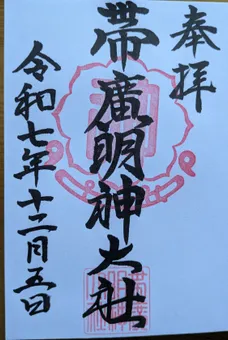 奉拝
帯廣明神大社
令和七年十二月五日